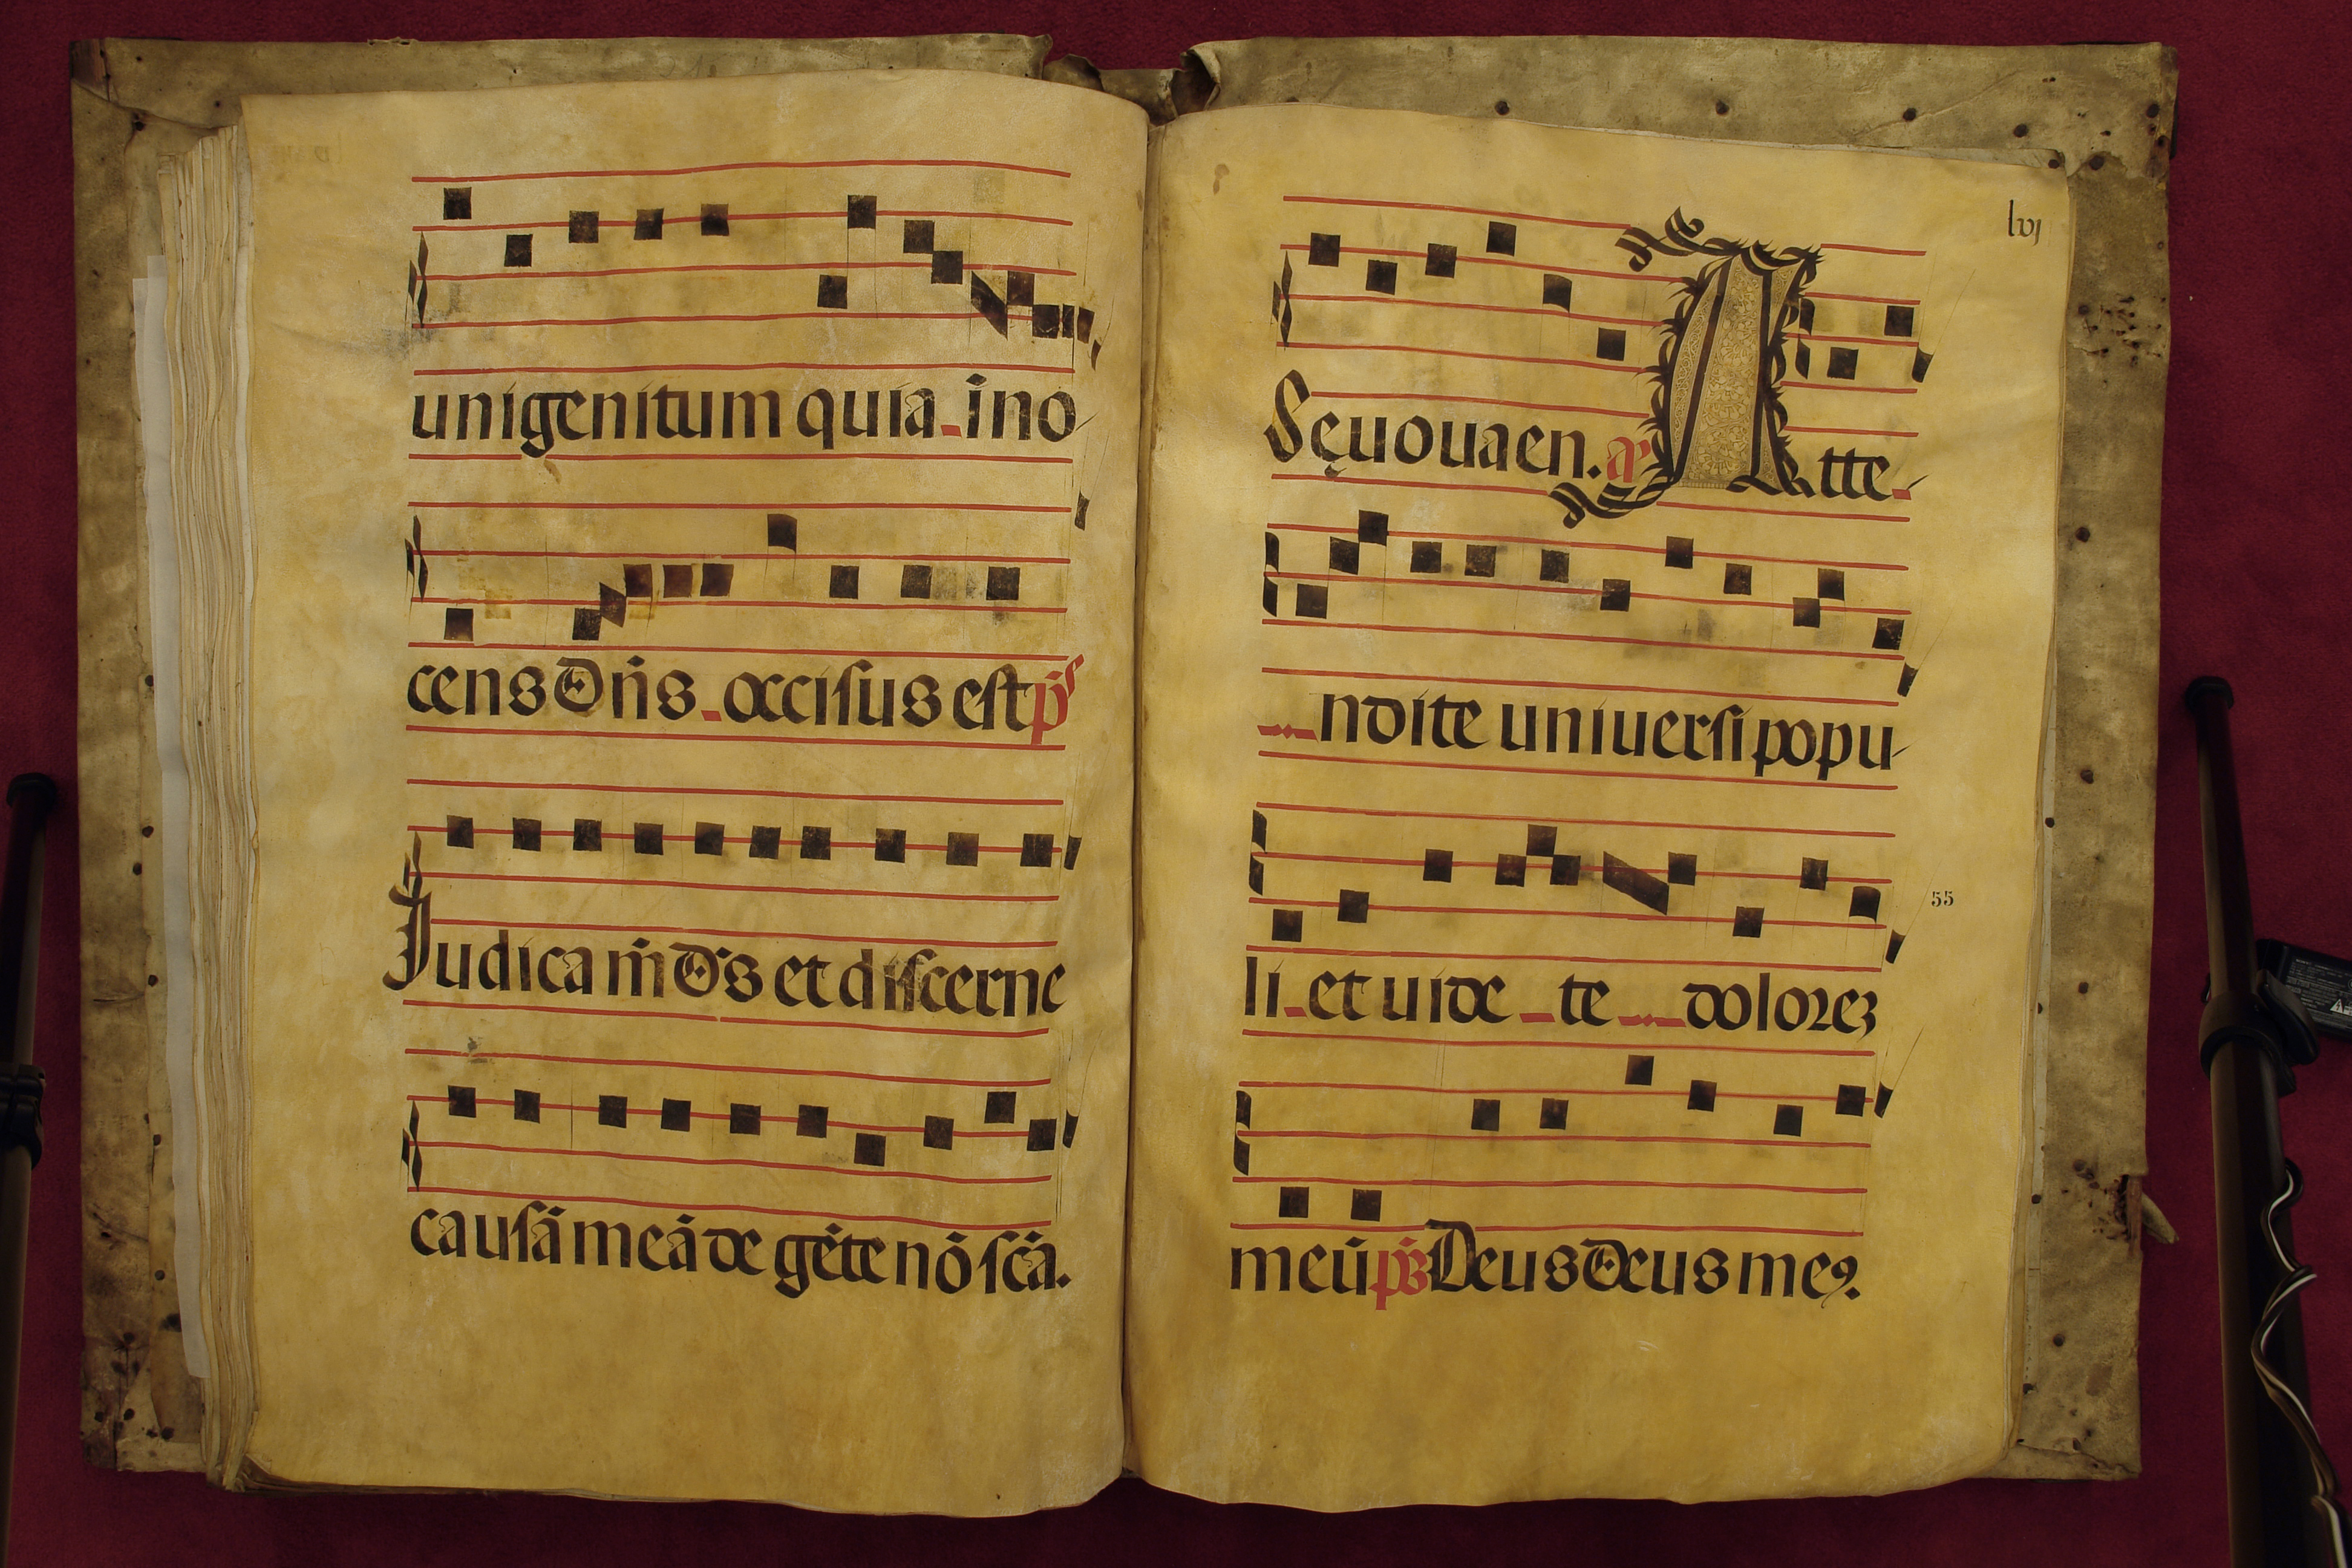 unigenitum quia ino
cens Dn̄s occisus est ps̄
Judica m̄ Ds̄ et discerne
causā meā de gēte nō scā.
lvj
Seuouaen. añ Atte
ndite uniuersi popu
li et uide te dolorez
55
meū ps̄ Deus Deus me9.